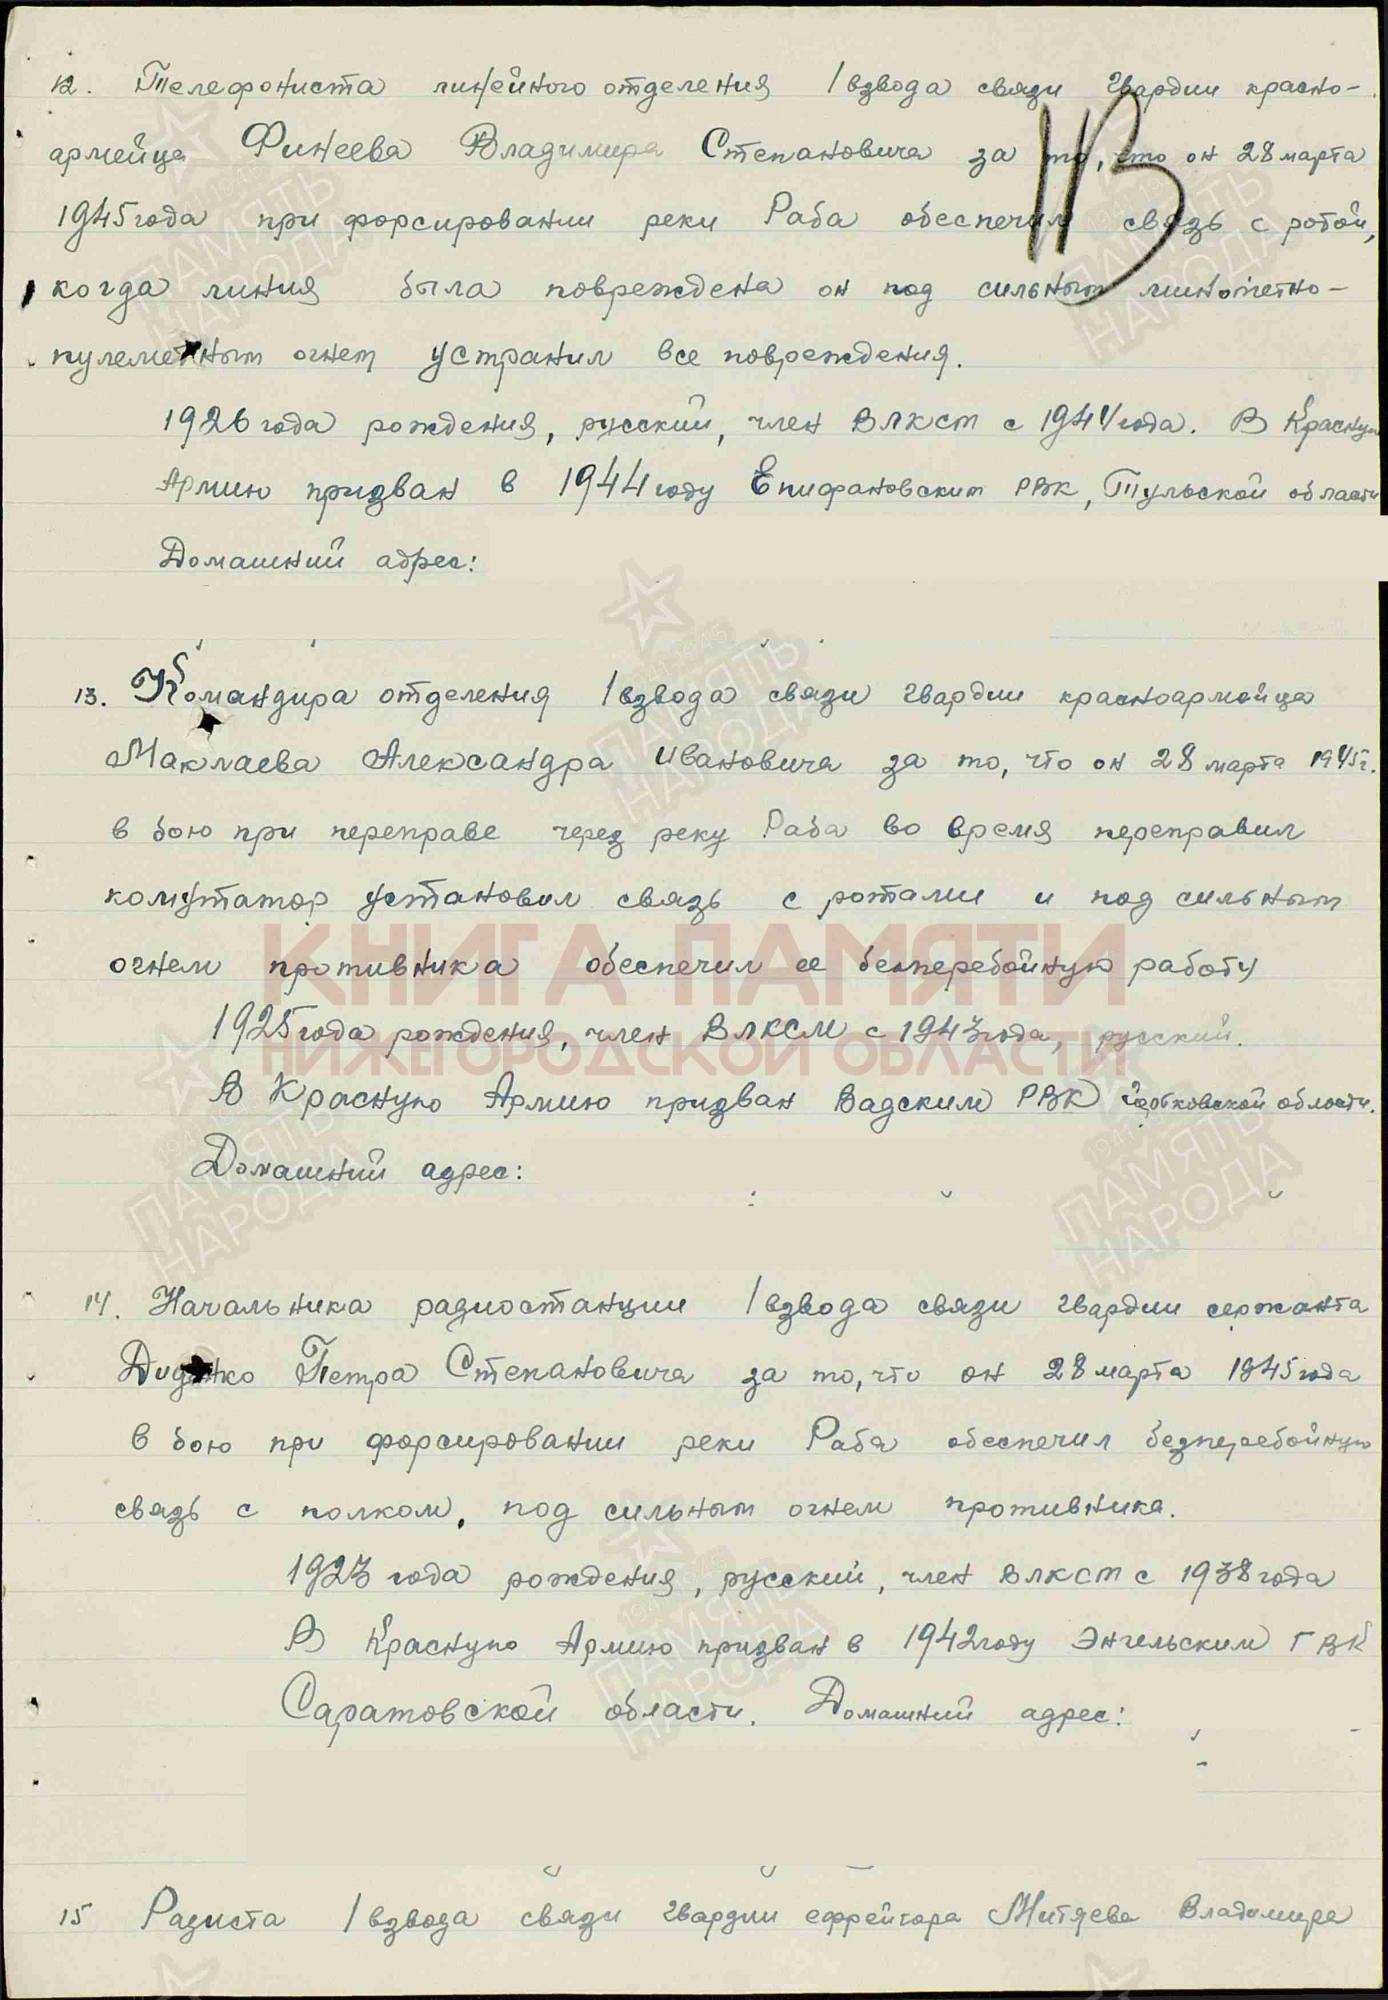 12. Телефониста линейного отделения 1 взвода связи гвардии красно-
армейца Финеева Владимира Степановича за то, что он 28 марта
1945 года при форсировании реки Раба обеспечил связь с ротой,
когда линия была повреждена он под сильным минометно-
пулеметным огнем устранил все повреждения.
1926 года рождения, русский, член ВЛКСМ с 1944 года. В Красную
Армию призван в 1944 году Епифановским РВК, Тульской области
Домашний адрес:
13. Командира отделения 1 взвода связи гвардии красноармейца
Маклаева Александра Ивановича за то, что он 28 марта 1945 г.
в бою при переправе через реку Раба во время переправил
комутатор установил связь с ротами и под сильным
огнем противника обеспечил ее бесперебойную работу
КНИГА ПАМЯТИ
1925 года рождения, член ВЛКСМ с 1943 года, русский.
НИЖЕГОРОДСКОЙ ОБЛАСТИ
В Красную Армию призван Вадским РВК Горьковской области.
Домашний адрес:
14. Начальника радиостанции 1 взвода связи гвардии сержанта
Диденко Петра Степановича за то, что он 28 марта 1945 года
в бою при форсировании реки Раба обеспечил безперебойную
связь с полком, под сильным огнем противника.
1923 года рождения, русский, член ВЛКСМ с 1938 года
В Красную Армию призван в 1942 году Энгельским ГВК
Саратовской области. Домашний адрес:
15 Радиста 1 взвода связи гвардии ефрейтора Митяева Владимира